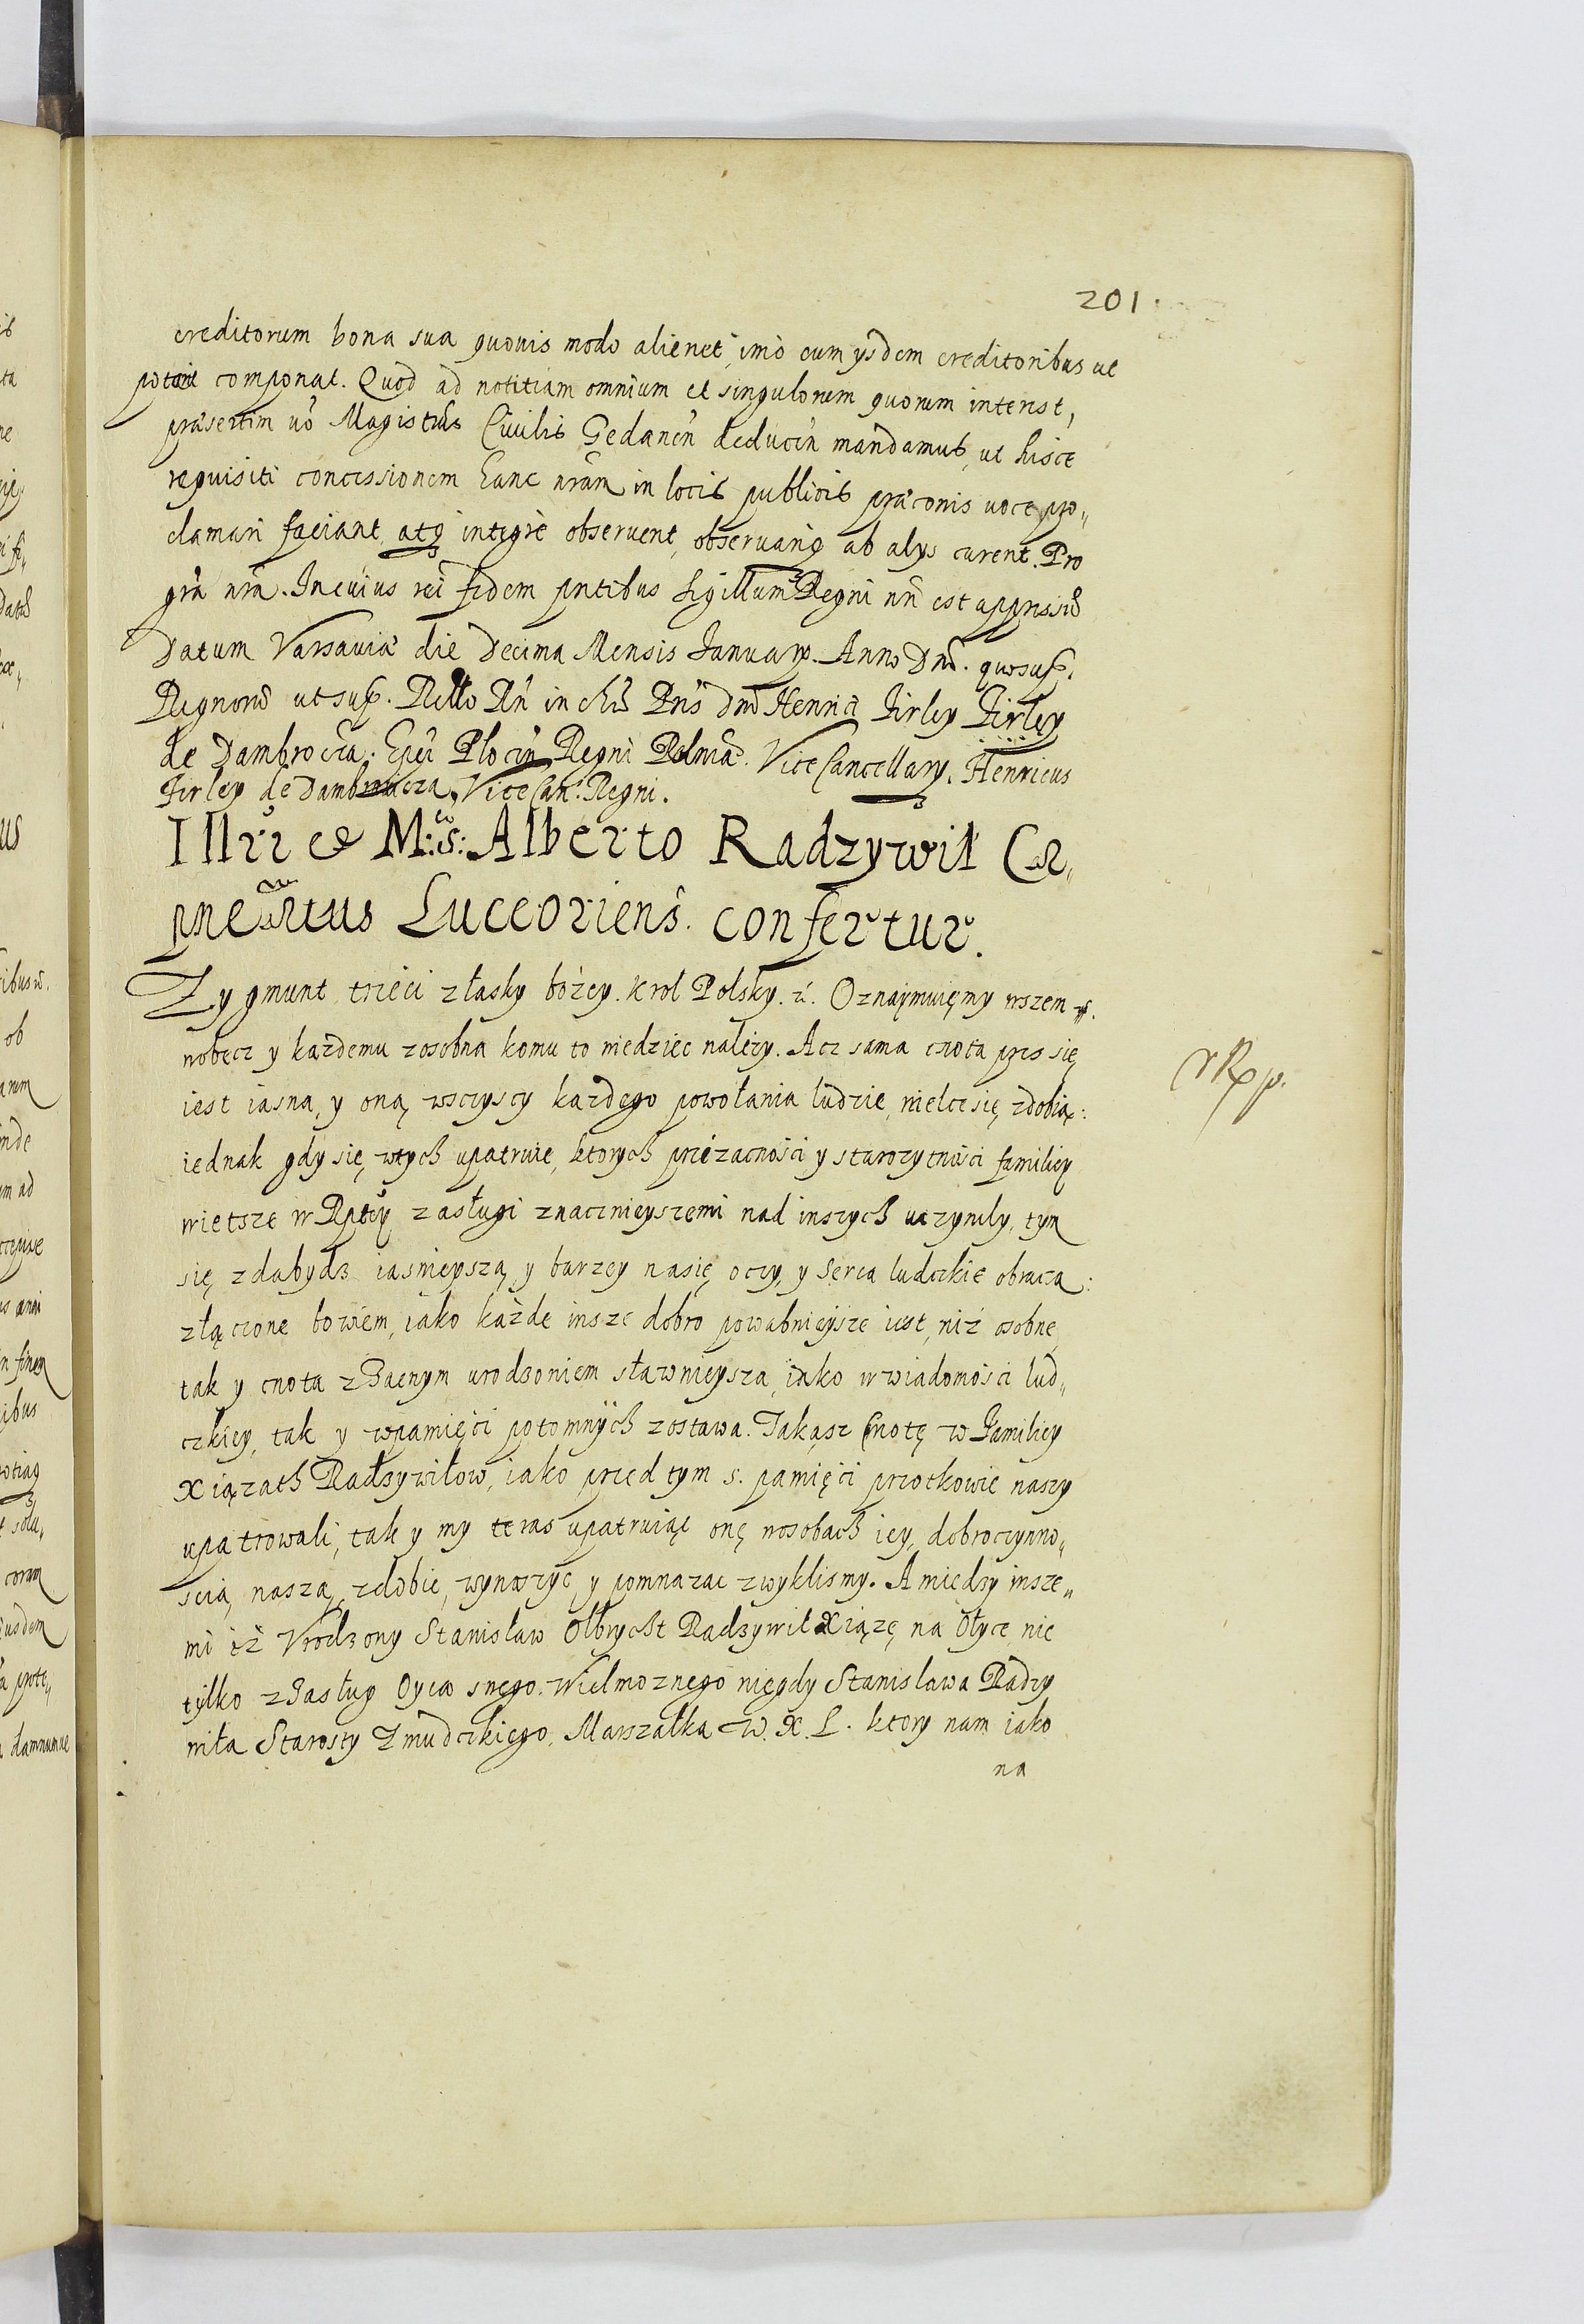 201.
creditorum bona sua quouis modo alienet, imò cum ysdem creditoribus ut
poterit componat. Quod ad notitiam omnium et singulorum quorum interest,
præsertim vo Magistrûs Ciuilis Gedanen̄ deducen̄ mandamus, ut hisce
requisiti concessionem hanc nrām in locis publicis præconis uoce pro„
clamari faciant, atq integrè obseruent, obseruariq ab alys curent. Pro
grā nrā. In cuius rei fidem pntibus sigillum Regni nrī est appressū
Datum Varsauiæ die Decima Mensis Januarÿ. Anno Dnī. quo sup.
Regnorū ut sup. Rełło Rn̄ in chō Pris Dnī Henrici Firley Firley
de Dambrocza. Epi Plocen̄ Regni Polniæ. Vice Cancellarÿ. Henricus
Firley de Dambrowicza, Vice Can: Regni.
Illri et M:co: Alberto Radzywił Ca„
pneatus Luceoriens. confertur.
Zygmunt trzeći z łasky bożey. Krol Polsky. ż. Oznaymuięmy wszem w.
wobecz y każdemu zosobna komu to wiedziec należy. Acz sama cnota przes się
iest iasna, y oną wszyscy każdego powołania ludzie, wielce się zdobią:
iednak gdy się wtych upatruie, ktorych prżezacności y starozytności familiey
wietsze w Rptey zasługi znacznieyszemi nad inszych uczyniły, tym
się zdabydz iasnieyszą y barzey na się oczy, y serca ludzkie obraca:
złączone bowiem, iako każde insze dobro powabnieysze iest, niż osobne,
tak y cnota z Zacnym urodzoniem sławnieysza, iako w wiadomości lud„
czkiey, tak y wpamięći potomnych zostawa. Takąsz Cnotę w Familiey
Xiążath Radzywiłow, iako przed tym s. pamięći przotkowie naszy
upatrowali, tak y my teras upatruiąc onę wosobach iey, dobroczynno„
scią naszą zdobic, wynoszyc y pomnazac zwyklismy. A miedzy insze„
mi iż Vrodzony Stanisław Olbrycht Radzywił Xiąże na Ołyce nie
tylko z Zasług Oyca swego. Wielmoznego niegdy Stanisława Radzy
wiła Starosty Zmudczkiego, Marszałka W. X. L. ktory nam iako
na